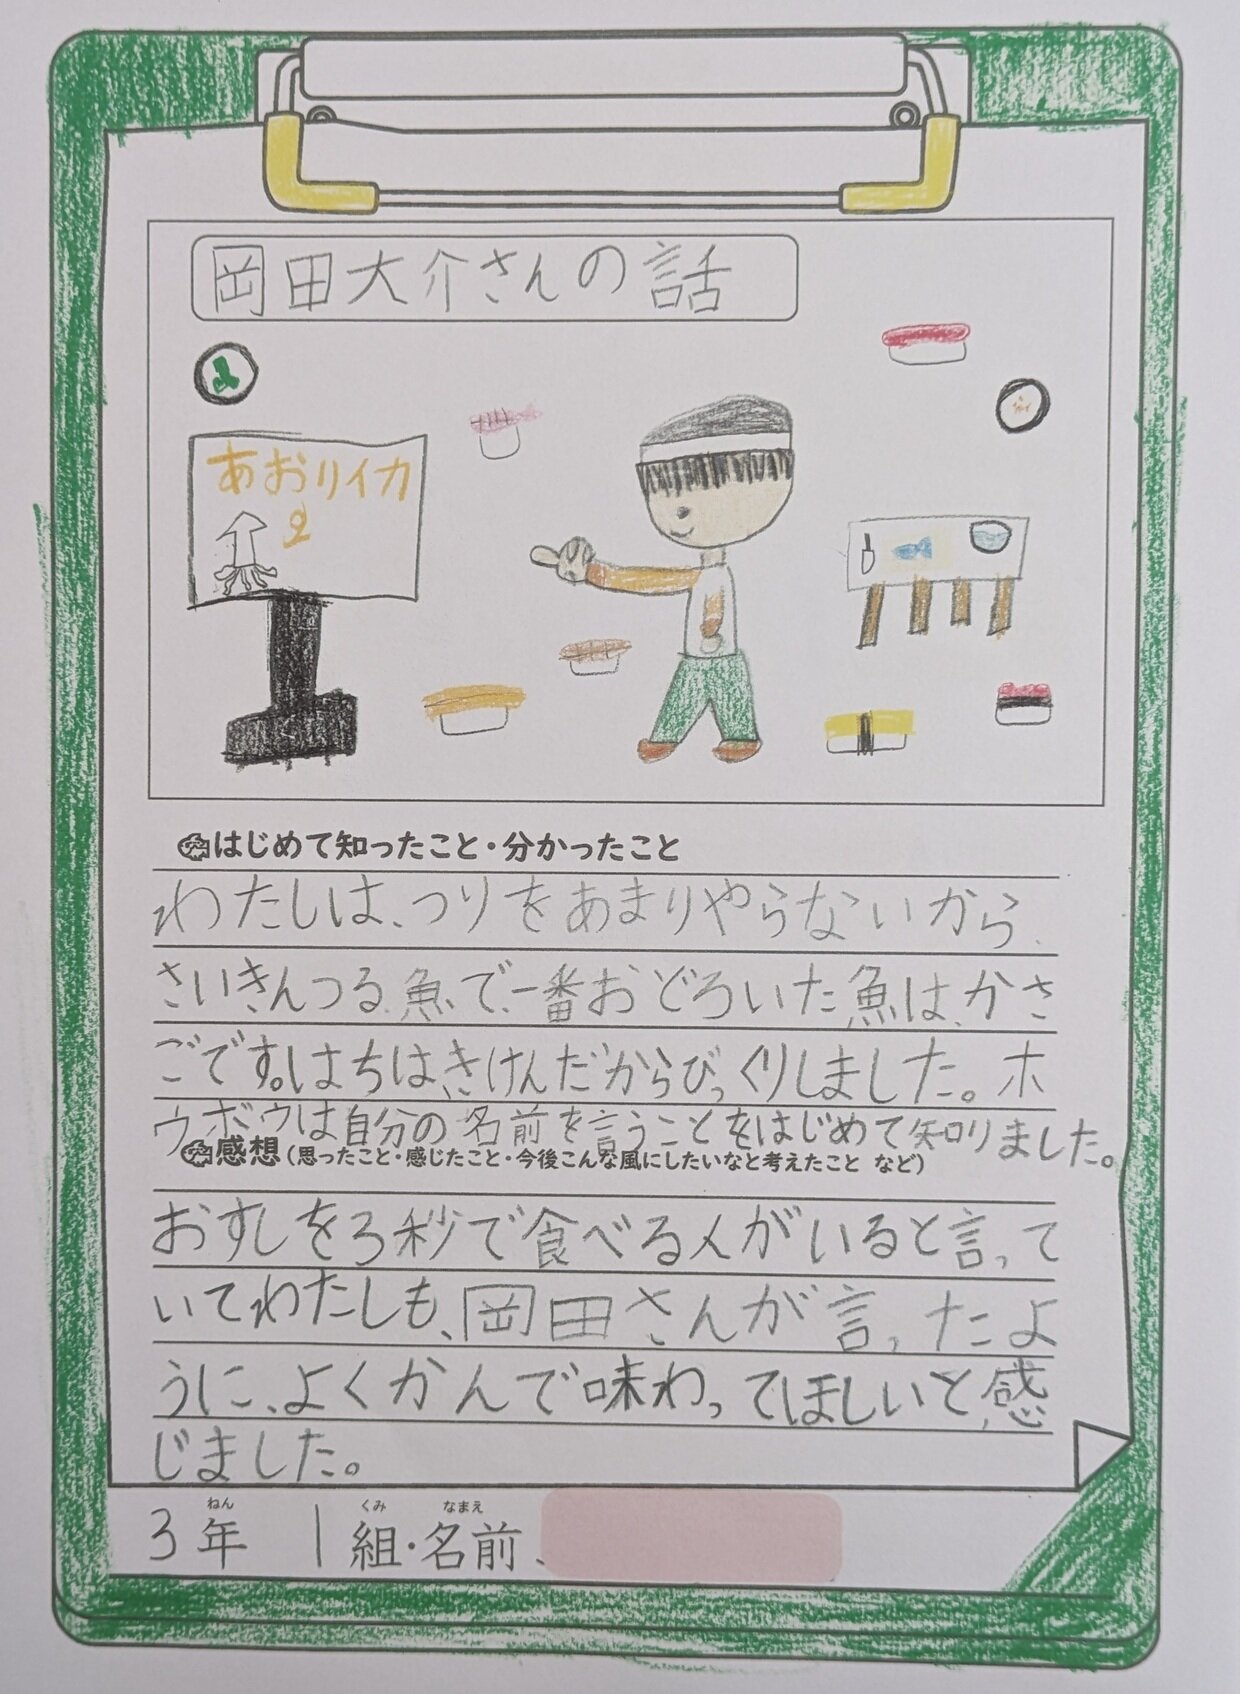 岡田大介さんの話
あおりイカ
はじめて知ったこと・分かったこと
わたしは、つりをあまりやらないから、
さいきんつる魚で、一番おどろいた魚は、かさ
ごです。はちは、きけんだからびっくりしました。ホ
ウボウは自分の名前を言うことをはじめて知りました。
感想(思ったこと・感じたこと・今後こんな風にしたいなと考えたこと など)
おすしを3秒で食べる人がいると言って
いてわたしも、岡田さんが言ったよ
うに、よくかんで味わってほしいと、感
じました。
ねん くみ なまえ
3年 1組・名前